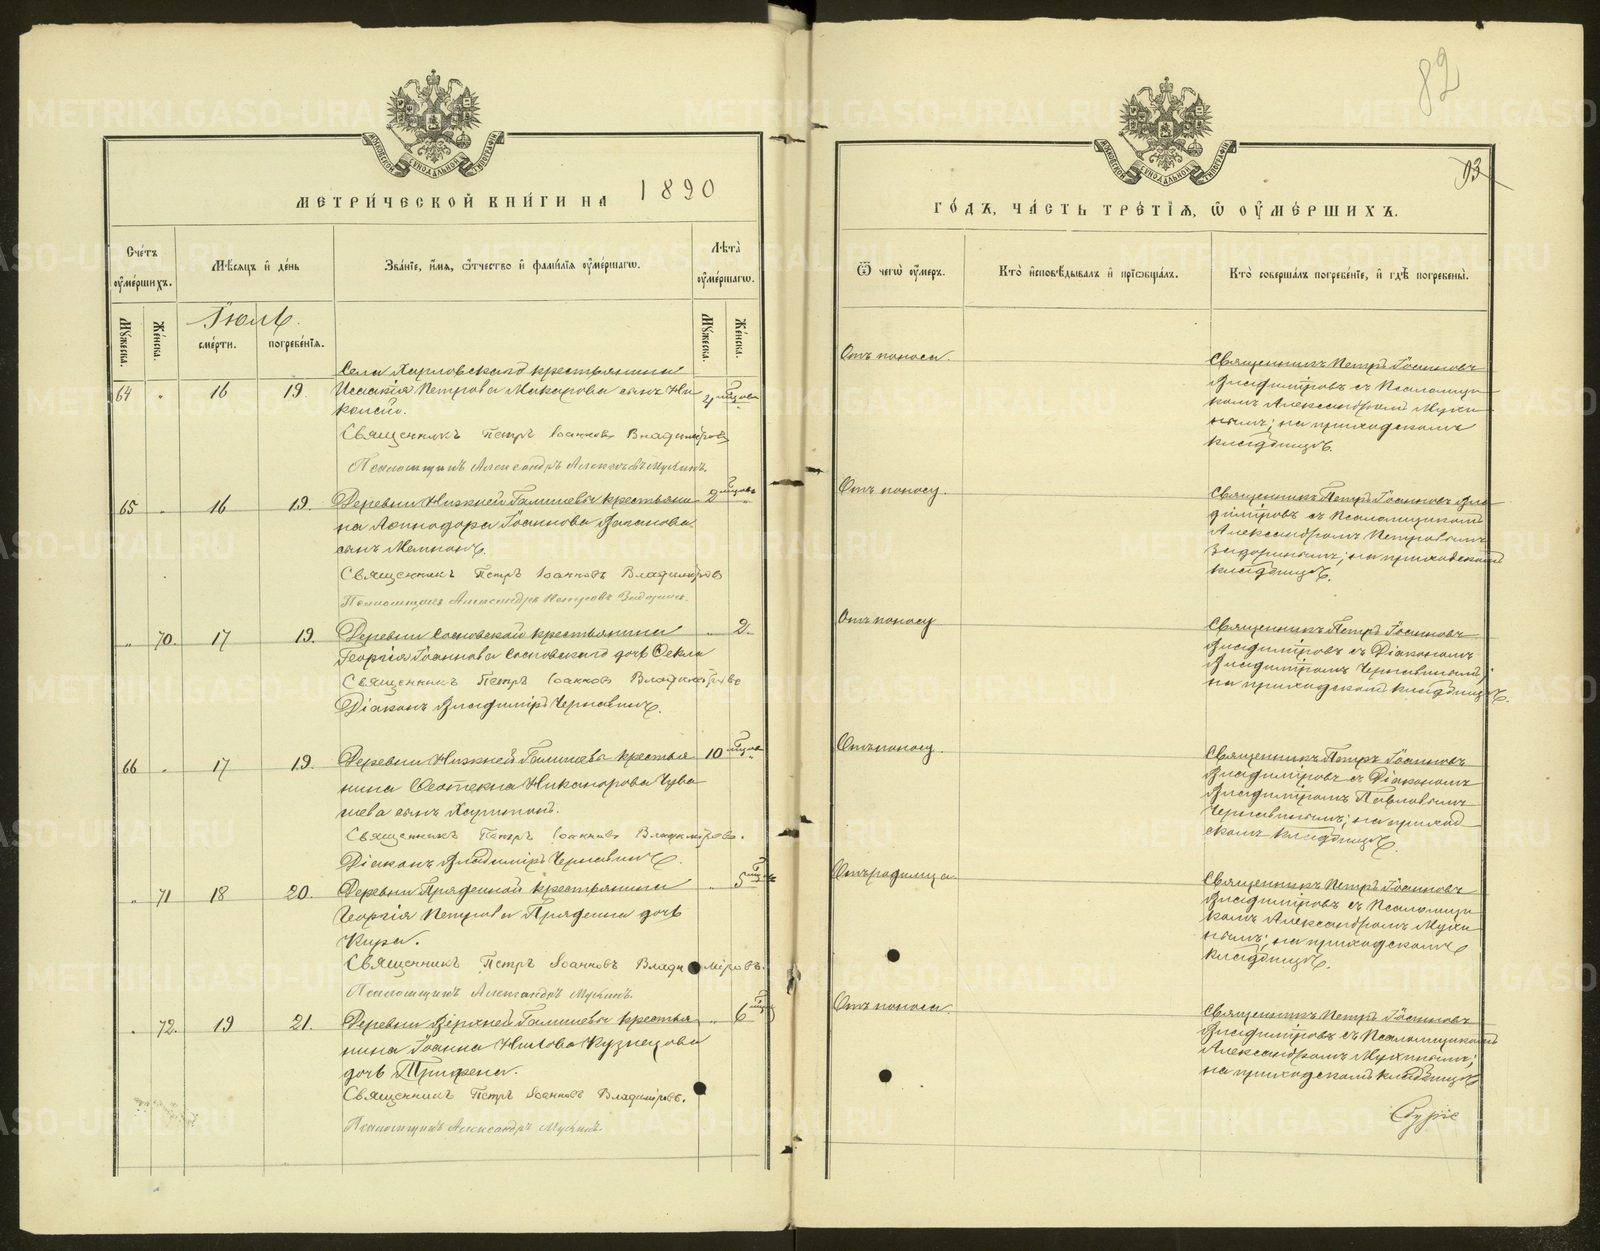 82
93
МЕТРИ́ЧЕСКОЙ КНИ́ГИ НА 1890
ГО́ДЪ, ЧА́СТЬ ТРЕ́ТІЯ, Ѿ ОУ҆МЕ́РШИХЪ.
Сче́тъ оу҆ме́ршихъ.
Мѣ́сяцъ и҆ де́нь
Зва́ніе, и҆́мя, ѻ҆́тчество и҆ фами́лія оу҆ме́ршагѡ.
Лѣ́та оу҆ме́ршагѡ.
Ѿ чегѡ̀ оу҆́меръ.
Кто̀ и҆сповѣ́дывалъ и҆ прїѡбща́лъ.
Кто̀ соверша́лъ погребе́ніе, и҆ гдѣ̀ погребены̀.
Му́жеска.
Же́нска.
Іюль.
сме́рти.
погребе́нія.
Му́жеска.
Же́нска.
Села Харловскаго крестьянина
64 " 16 19. Исаакія Петрова Макарова сынъ Ни 4 мѣсяц.
колай.
Священникъ Петръ Іоанновъ Владиміровъ
Псаломщикъ Александръ Мухинъ.
Отъ поноса.
Священникъ Петръ Іоанновъ
Владиміровъ съ Псаломщи
комъ Александромъ Мухи
нымъ; на приходскомъ
кладбищѣ.
65 " 16 19. Деревни Нижней Галишевы крестьяни 2 мѣсяц.
на Іоаннова
сынъ
Священникъ Петръ Іоанновъ Владиміровъ
Псаломщикъ Александръ Петровъ Задоринъ.
Отъ поносу.
Священникъ Петръ Іоанновъ Вла
диміровъ съ Псаломщикомъ
Александромъ Петровымъ
Задоринымъ; на приходскомъ
кладбищѣ.
" 70. 17 19. Деревни Сосновской крестьянина " 2.
Георгія Іоаннова Сосновскаго дочь Ѳекла
Священникъ Петръ Іоанновъ Владиміровъ
Діаконъ Владиміръ Чернавинъ.
Отъ поносу
Священникъ Петръ Іоанновъ
Владиміровъ съ Діакономъ
Владиміромъ Чернавинымъ;
на приходскомъ кладбищѣ.
66 " 17 19. Деревни Нижней Галишевы крестья 10 мѣсяц.
нина Никанорова Чува
шева сынъ Харитонъ.
Священникъ Петръ Іоанновъ Владиміровъ.
Діаконъ Владиміръ Чернавинъ.
Отъ поносу.
Священникъ Петръ Іоанновъ
Владиміровъ съ Діакономъ
Владиміромъ Павловымъ
Чернавинымъ; на приход
скомъ кладбищѣ.
" 71 18 20. Деревни Пряденной крестьянина " 5
Георгія Петрова Прядеина дочь
Кира.
Священникъ Петръ Іоанновъ Владиміровъ.
Псаломщикъ Александръ Мухинъ.
Отъ родимца.
Священникъ Петръ Іоанновъ
Владиміровъ съ Псаломщи
комъ Александромъ Мухи
нымъ; на приходскомъ
кладбищѣ.
" 72. 19 21. Деревни Верхней Галишевы крестья " 6
нина Іоанна Кузнецова
дочь Трифена.
Священникъ Петръ Іоанновъ Владиміровъ.
Псаломщикъ Александръ Мухинъ.
Отъ поноса.
Священникъ Петръ Іоанновъ
Владиміровъ съ Псаломщикомъ
Александромъ Мухинымъ;
на приходскомъ кладбищѣ
METRIKI.GASO-URAL.RU